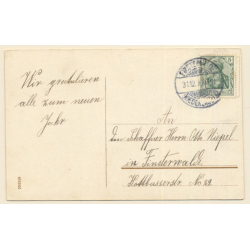 Wir gratulieren
alle zum neuen
Jahr
An
den Schaffner Herrn Otto
in Finsterwalde
Kottbuserstr. No 28.